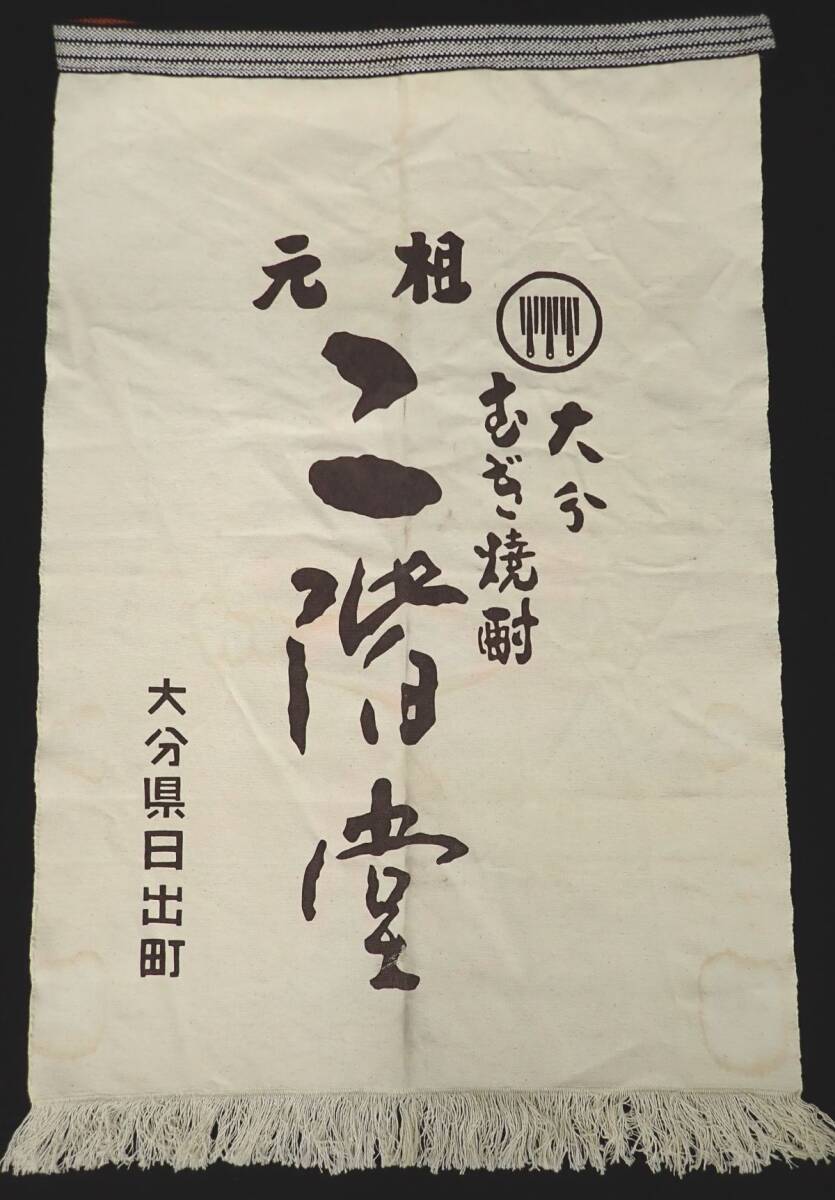 大分
むぎ焼酎
元祖
二階堂
大分県日出町